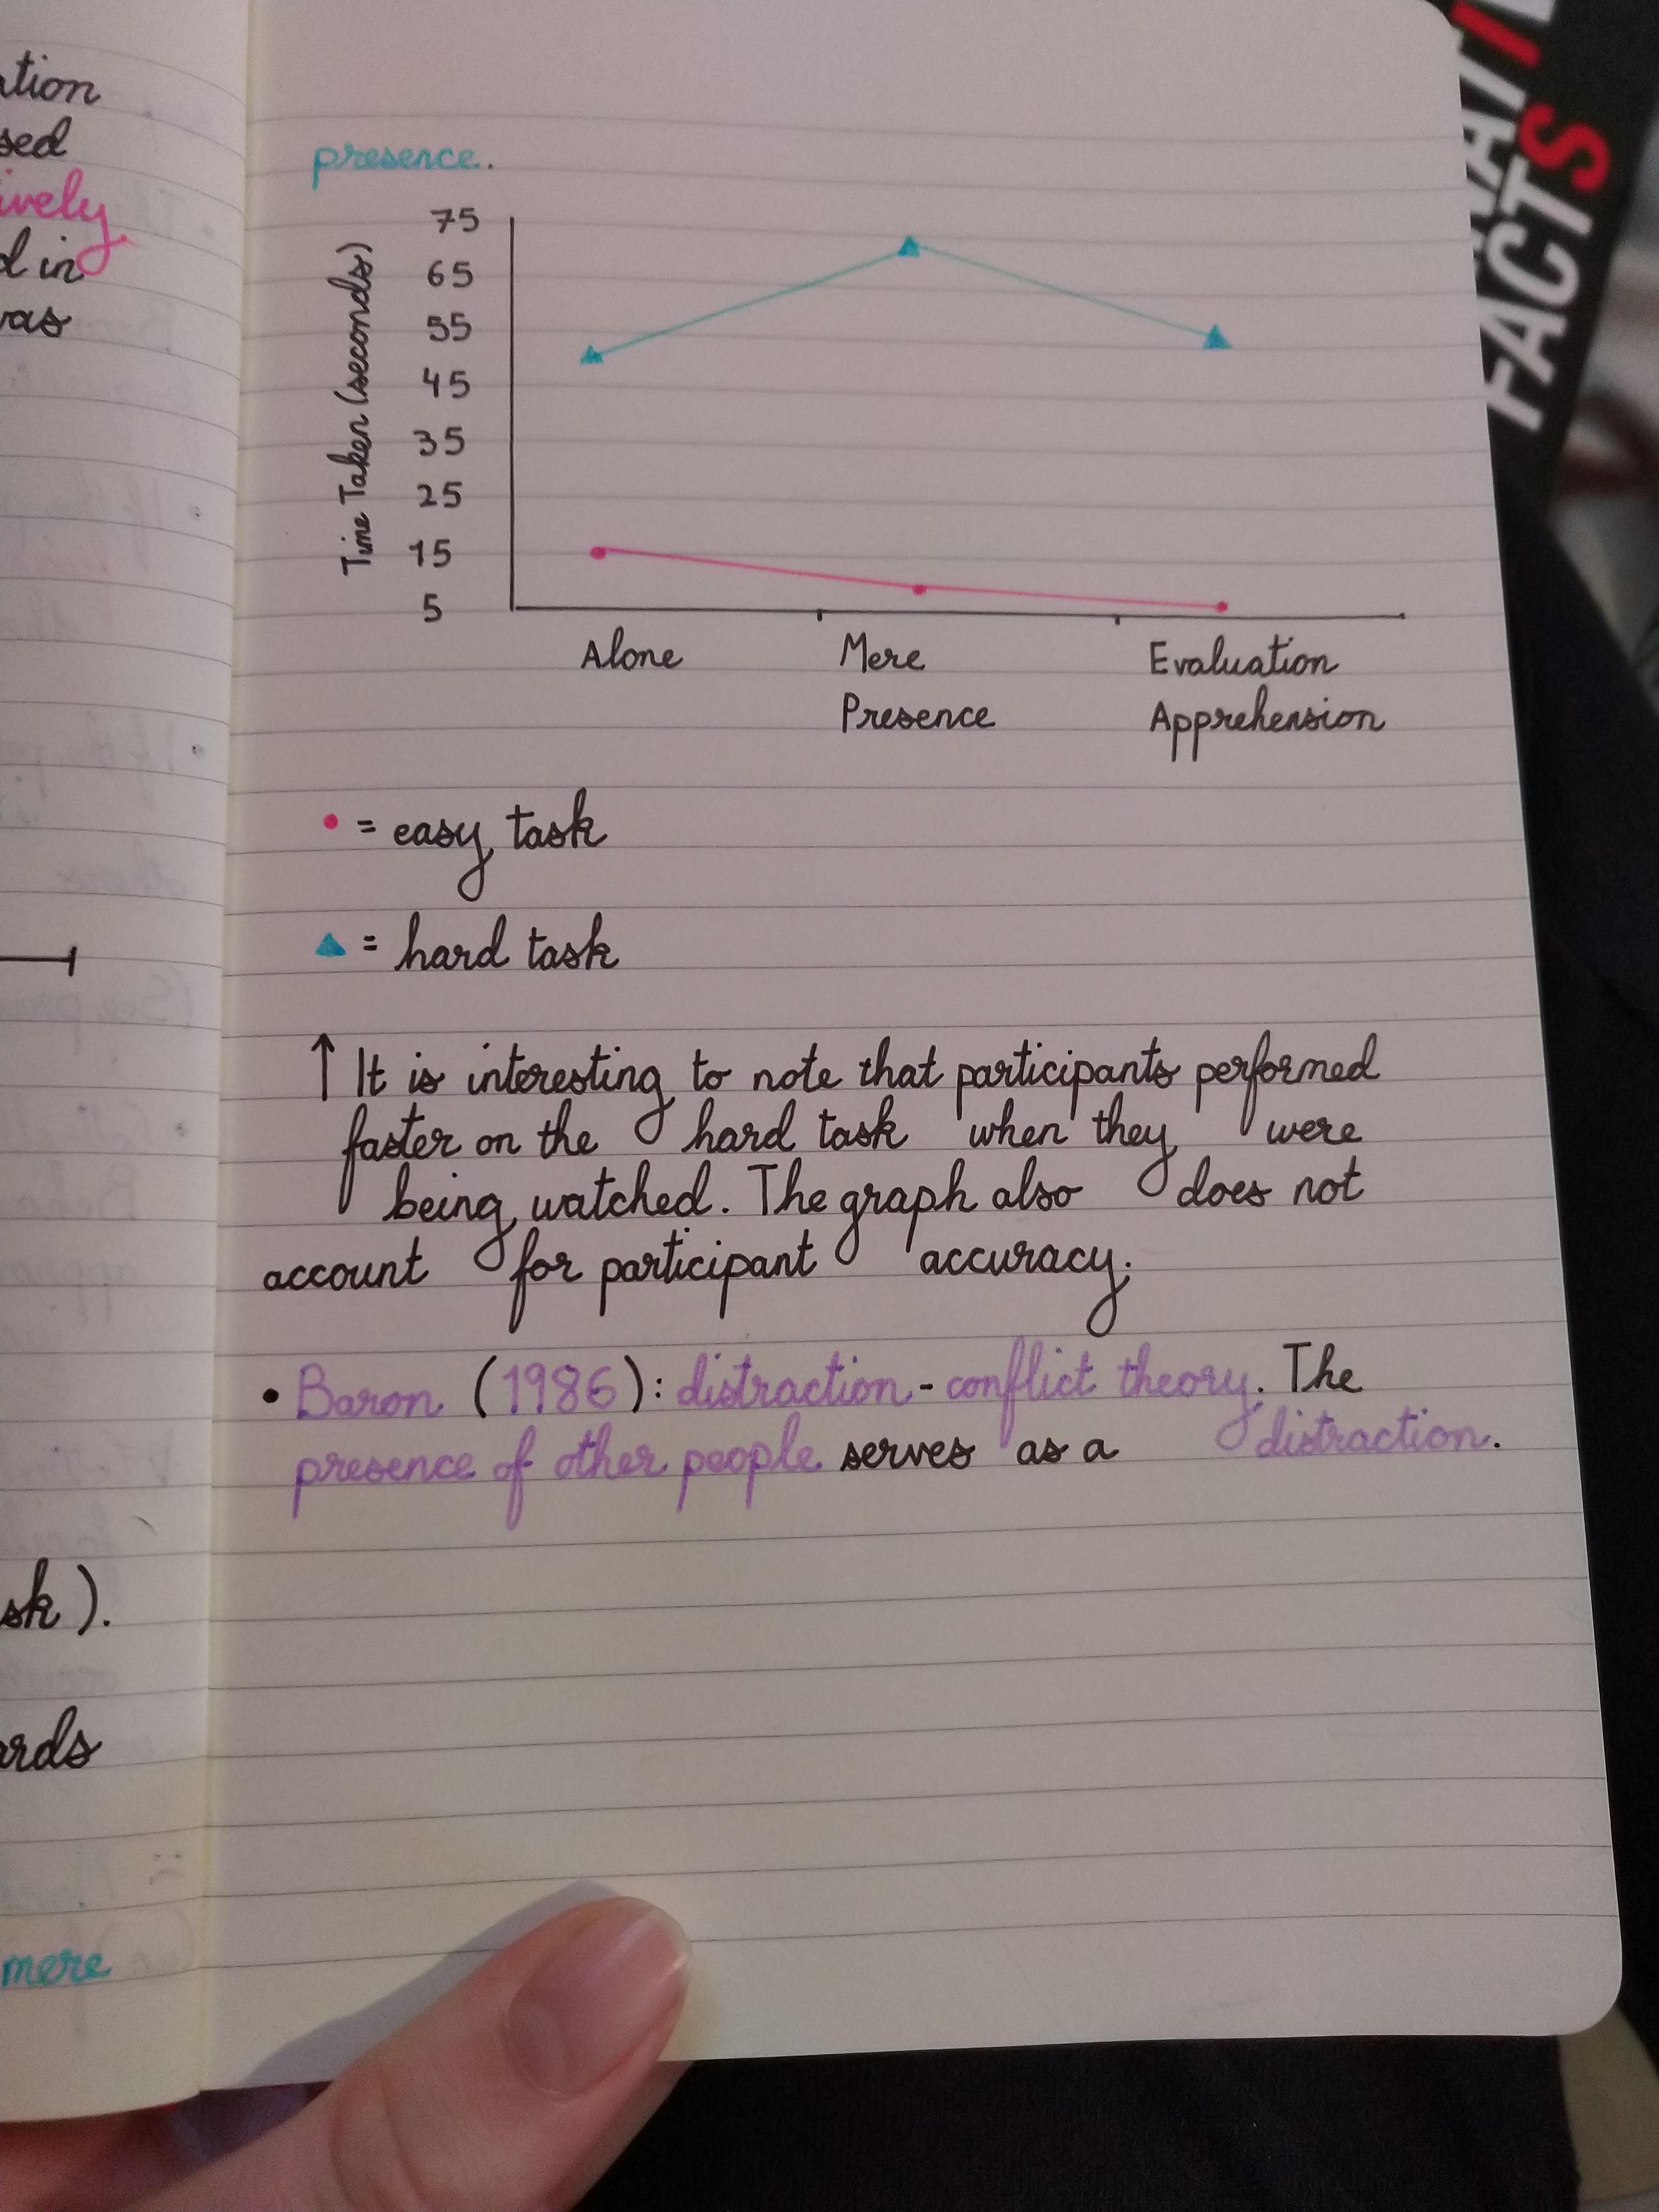 presence.
Time Taken (seconds)
75
65
55
45
35
25
15
5
Alone
Mere
Presence
Evaluation
Apprehension
• = easy task
▲ = hard task
↑ It is interesting to note that participants performed
faster on the hard task when they were
being watched. The graph also does not
account for participant accuracy.
• Baron (1986): distraction-conflict theory. The
presence of other people serves as a distraction.
sed
d in
sk).
mere
FACTS